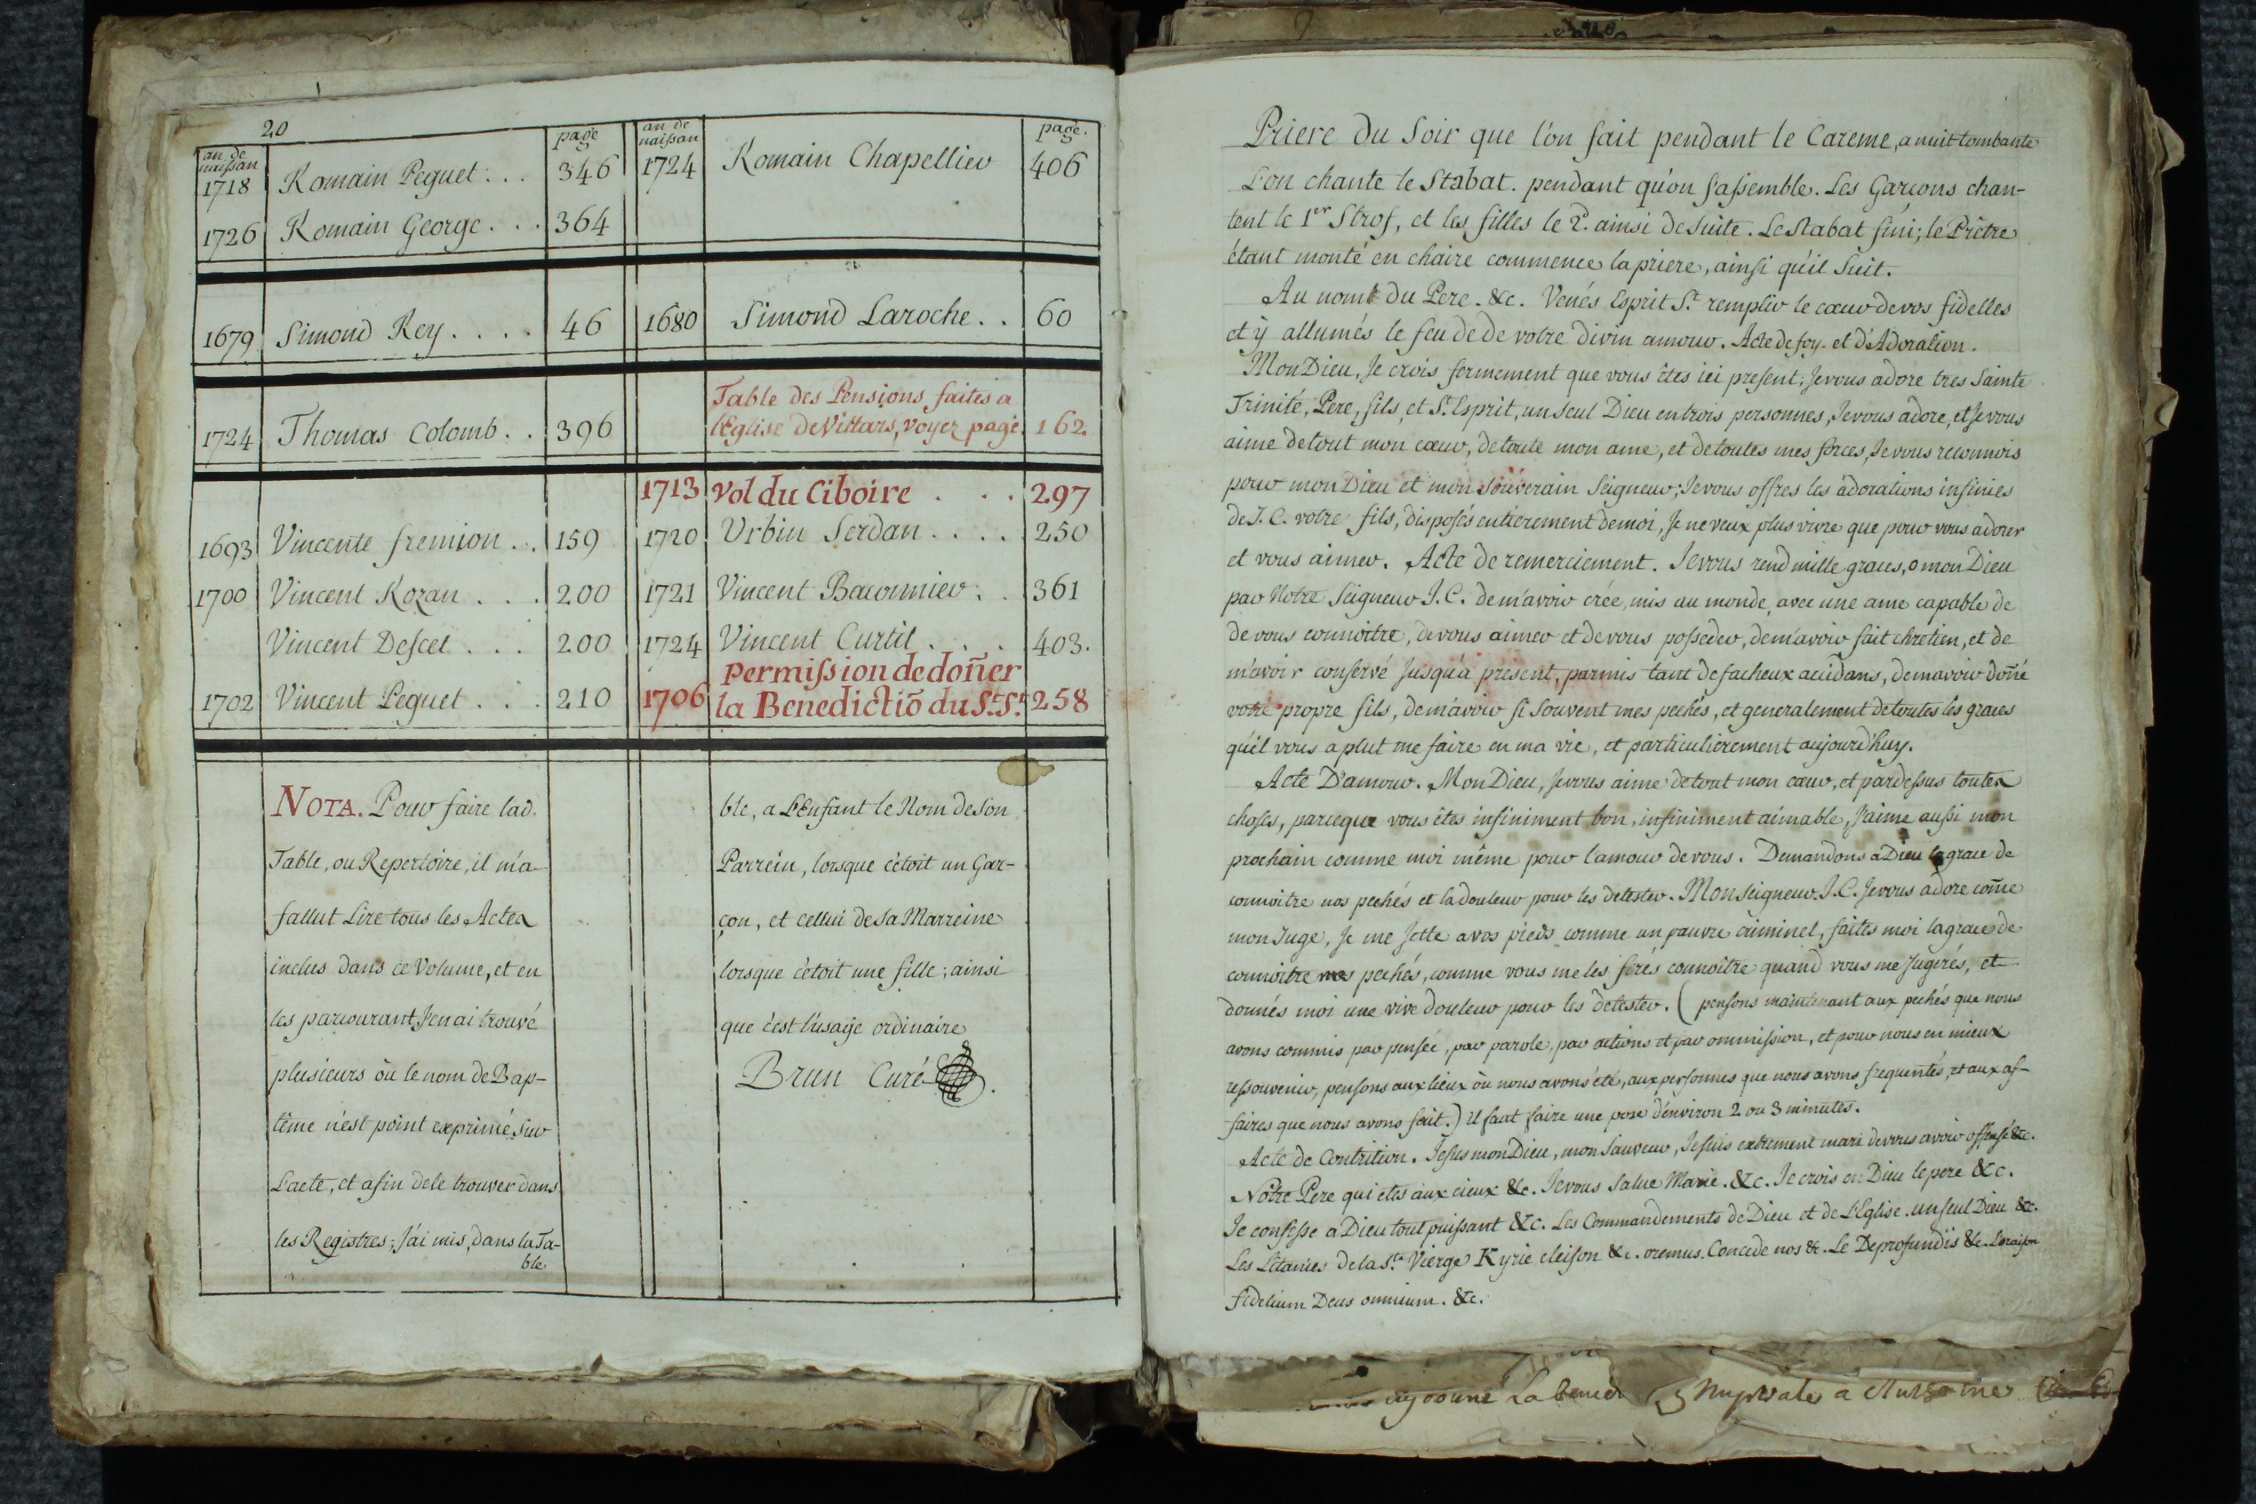 20
an de naissan
page
an de naissan
page.
1718 Romain Peguet . . . 346
1726 Romain George . . . 364
1724 Romain Chapellier 406
1679 Simond Rey . . . . 46
1680 Simond Laroche . . 60
1724 Thomas Colomb . . 396
Table des Pensions faites a
l'Eglise de Villars, voyez page. 162
1693 Vincente fremion . . 159
1700 Vincent Rozan . . . 200
Vincent Descel . . . 200
1702 Vincent Peguet . . . 210
1713 Vol du Ciboire . . . 297
1720 Urbin Serdan . . . . 250
1721 Vincent Baconnier . . 361
1724 Vincent Curtil . . . . 403.
permission de doñer
1706 la Benedictiõ du St. St. 258
NOTA. Pour faire lad.
Table, ou Repertoire, il m'a
fallut Lire tous les Actes
inclus dans ce Volume, et en
les parcourant J'en ai trouvé
plusieurs où le nom de Bap-
tême n'est point exprimé sur
L'acte, et afin de le trouver dans
les Registres; J'ai mis, dans la Ta-
ble
ble, a L'Enfant le Nom de son
Parrein, lorsque c'étoit un Gar-
çon, et cellui de sa Marreine
lorsque c'étoit une fille; ainsi
que c'est l'usage ordinaire
Brun Curé
Priere du Soir que l'on fait pendant le Careme, a nuit tombante
L'on chante le Stabat. pendant qu'on s'assemble. Les Garcons chan-
tent le 1er Strof, et les filles le 2d. ainsi de suite. Le stabat fini; le Prêtre
étant monté en chaire commence la priere, ainsi qu'il Suit.
Au nom du Pere. &c. Venés Esprit St. remplir le cœur de vos fidelles
et ÿ allumés le feu de de votre divin amour. Acte de foy et d'Adoration.
Mon Dieu, Je crois fermement que vous êtes ici present; Je vous adore tres Sainte
Trinité, Pere, fils, et St. Esprit, un seul Dieu en trois personnes, Je vous adore, et Je vous
aime de tout mon cœur, de toute mon ame, et de toutes mes forces, Je vous reconnois
pour mon Dieu et mon souverain Seigneur; Je vous offres les adorations infinies
de J. C. votre fils, disposés entierement de moi, Je ne veux plus vivre que pour vous adorer
et vous aimer. Acte de remerciement. Je vous rend mille graces, o mon Dieu
par Notre Seigneur J. C. de m'avoir créé, mis au monde, avec une ame capable de
de vous connoitre, de vous aimer et de vous posseder, de m'avoir fait chretien, et de
m'avoir conservé Jusqu'a present, parmis tant de facheux accidans, de m'avoir doñé
votre propre fils, de m'avoir si souvent mes pechés, et generalement de toutes les graces
qu'il vous a plut me faire en ma vie, et particulierement aujourd'huy.
Acte D'amour. Mon Dieu, Je vous aime de tout mon cœur, et pardessus toutes
choses, parceque vous êtes infiniment bon, infiniment aimable, J'aime aussi mon
prochain comme moi même pour l'amour de vous. Demandons a Dieu la grace de
connoitre nos pechés et la douleur pour les detester. Mon Seigneur J. C. Je vous adore com̃e
mon Juge, Je me Jette a vos pieds comme un pauvre criminel, faites moi la grace de
connoitre mes pechés, comme vous me les ferés connoître quand vous me Jugerés, et
donnés moi une vive douleur pour les detester. (pensons maintenant aux pechés que nous
avons commis par pensée, par parole, par actions et par ommission, et pour nous en mieux
ressouvenir, pensons aux lieux où nous avons été, aux personnes que nous avons frequentés, et aux af-
faires que nous avons fait.) il faut faire une pose d'environ 2 ou 3 minutes.
Acte de Contrition. Jesus mon Dieu, mon Sauveur, Je suis extrement mari de vous avoir offensé &c.
Nôtre Pere qui etes aux cieux &c. Je vous Salue Marie. &c. Je crois en Dieu le pere &c.
Je confesse a Dieu tout puissant &c. Les Commandements de Dieu et de L'Eglise. un seul Dieu &c.
Les Litanies de la Ste. Vierge Kyrie eleison &c. oremus. Concede nos &c. Le De profundis &c. L'oraison
fidelium Deus omnium. &c.
ay donné La bened